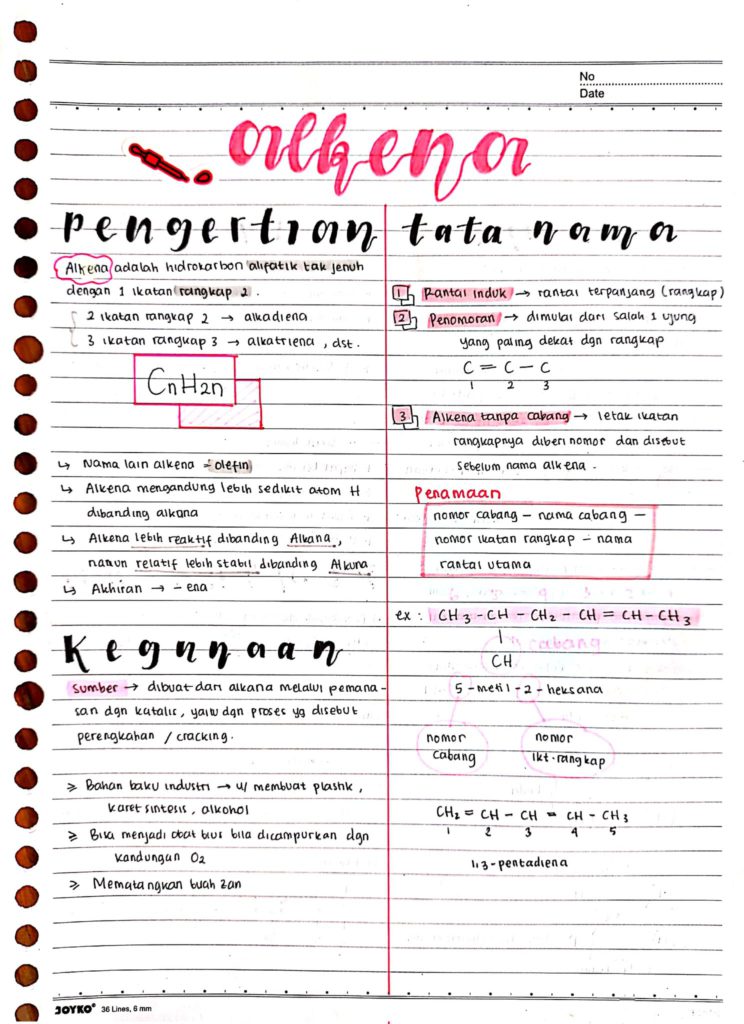 No
Date
alkena
pengertian
Alkena adalah hidrokarbon alifatik tak jenuh
dengan 1 ikatan rangkap 2.
2 ikatan rangkap 2 → alkadiena
3 ikatan rangkap 3 → alkatriena, dst.
CnH2n
↳ Nama lain alkena = olefin
↳ Alkena mengandung lebih sedikit atom H
dibanding alkana
↳ Alkena lebih reaktif dibanding Alkana,
namun relatif lebih stabil dibanding Alkuna.
↳ Akhiran → -ena
Kegunaan
Sumber → dibuat dari alkana melalui pemana-
san dgn katalis, yaitu dgn proses yg disebut
perengkahan / cracking.
≥ Bahan baku industri → u/ membuat plastik,
karet sintesis, alkohol
≥ Bisa menjadi obat bius bila dicampurkan dgn
kandungan O2
≥ Mematangkan buah 2an
tata nama
1 Rantai induk → rantai terpanjang (rangkap)
2 Penomoran → dimulai dari salah 1 ujung
yang paling dekat dgn rangkap
C = C - C
1 2 3
3 Alkena tanpa cabang → letak ikatan
rangkapnya diberi nomor dan disebut
sebelum nama alkena.
Penamaan
nomor cabang - nama cabang -
nomor ikatan rangkap - nama
rantai utama
ex: CH3 - CH - CH2 - CH = CH - CH3
cabang
CH
5-metil-2-heksana
nomor
cabang
nomor
ikt.rangkap
CH2 = CH - CH = CH - CH3
1 2 3 4 5
1,3-pentadiena
JOYKO® 36 Lines, 6 mm